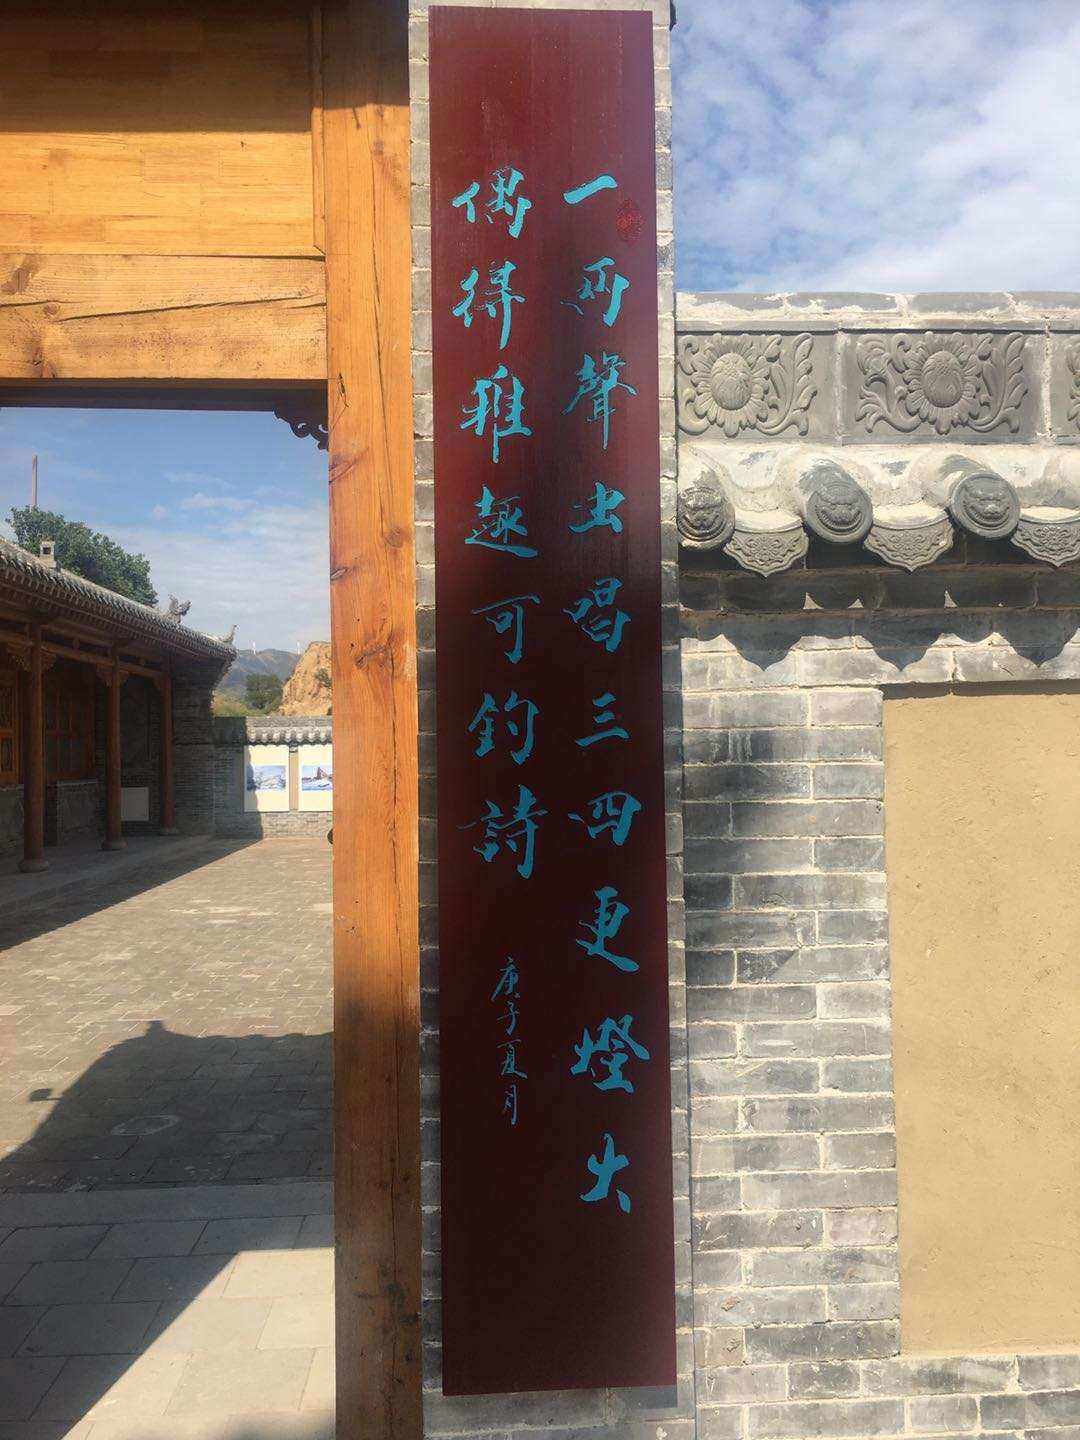 一两聲出唱三四更燈火
偶得雅趣可釣詩
庚子夏月